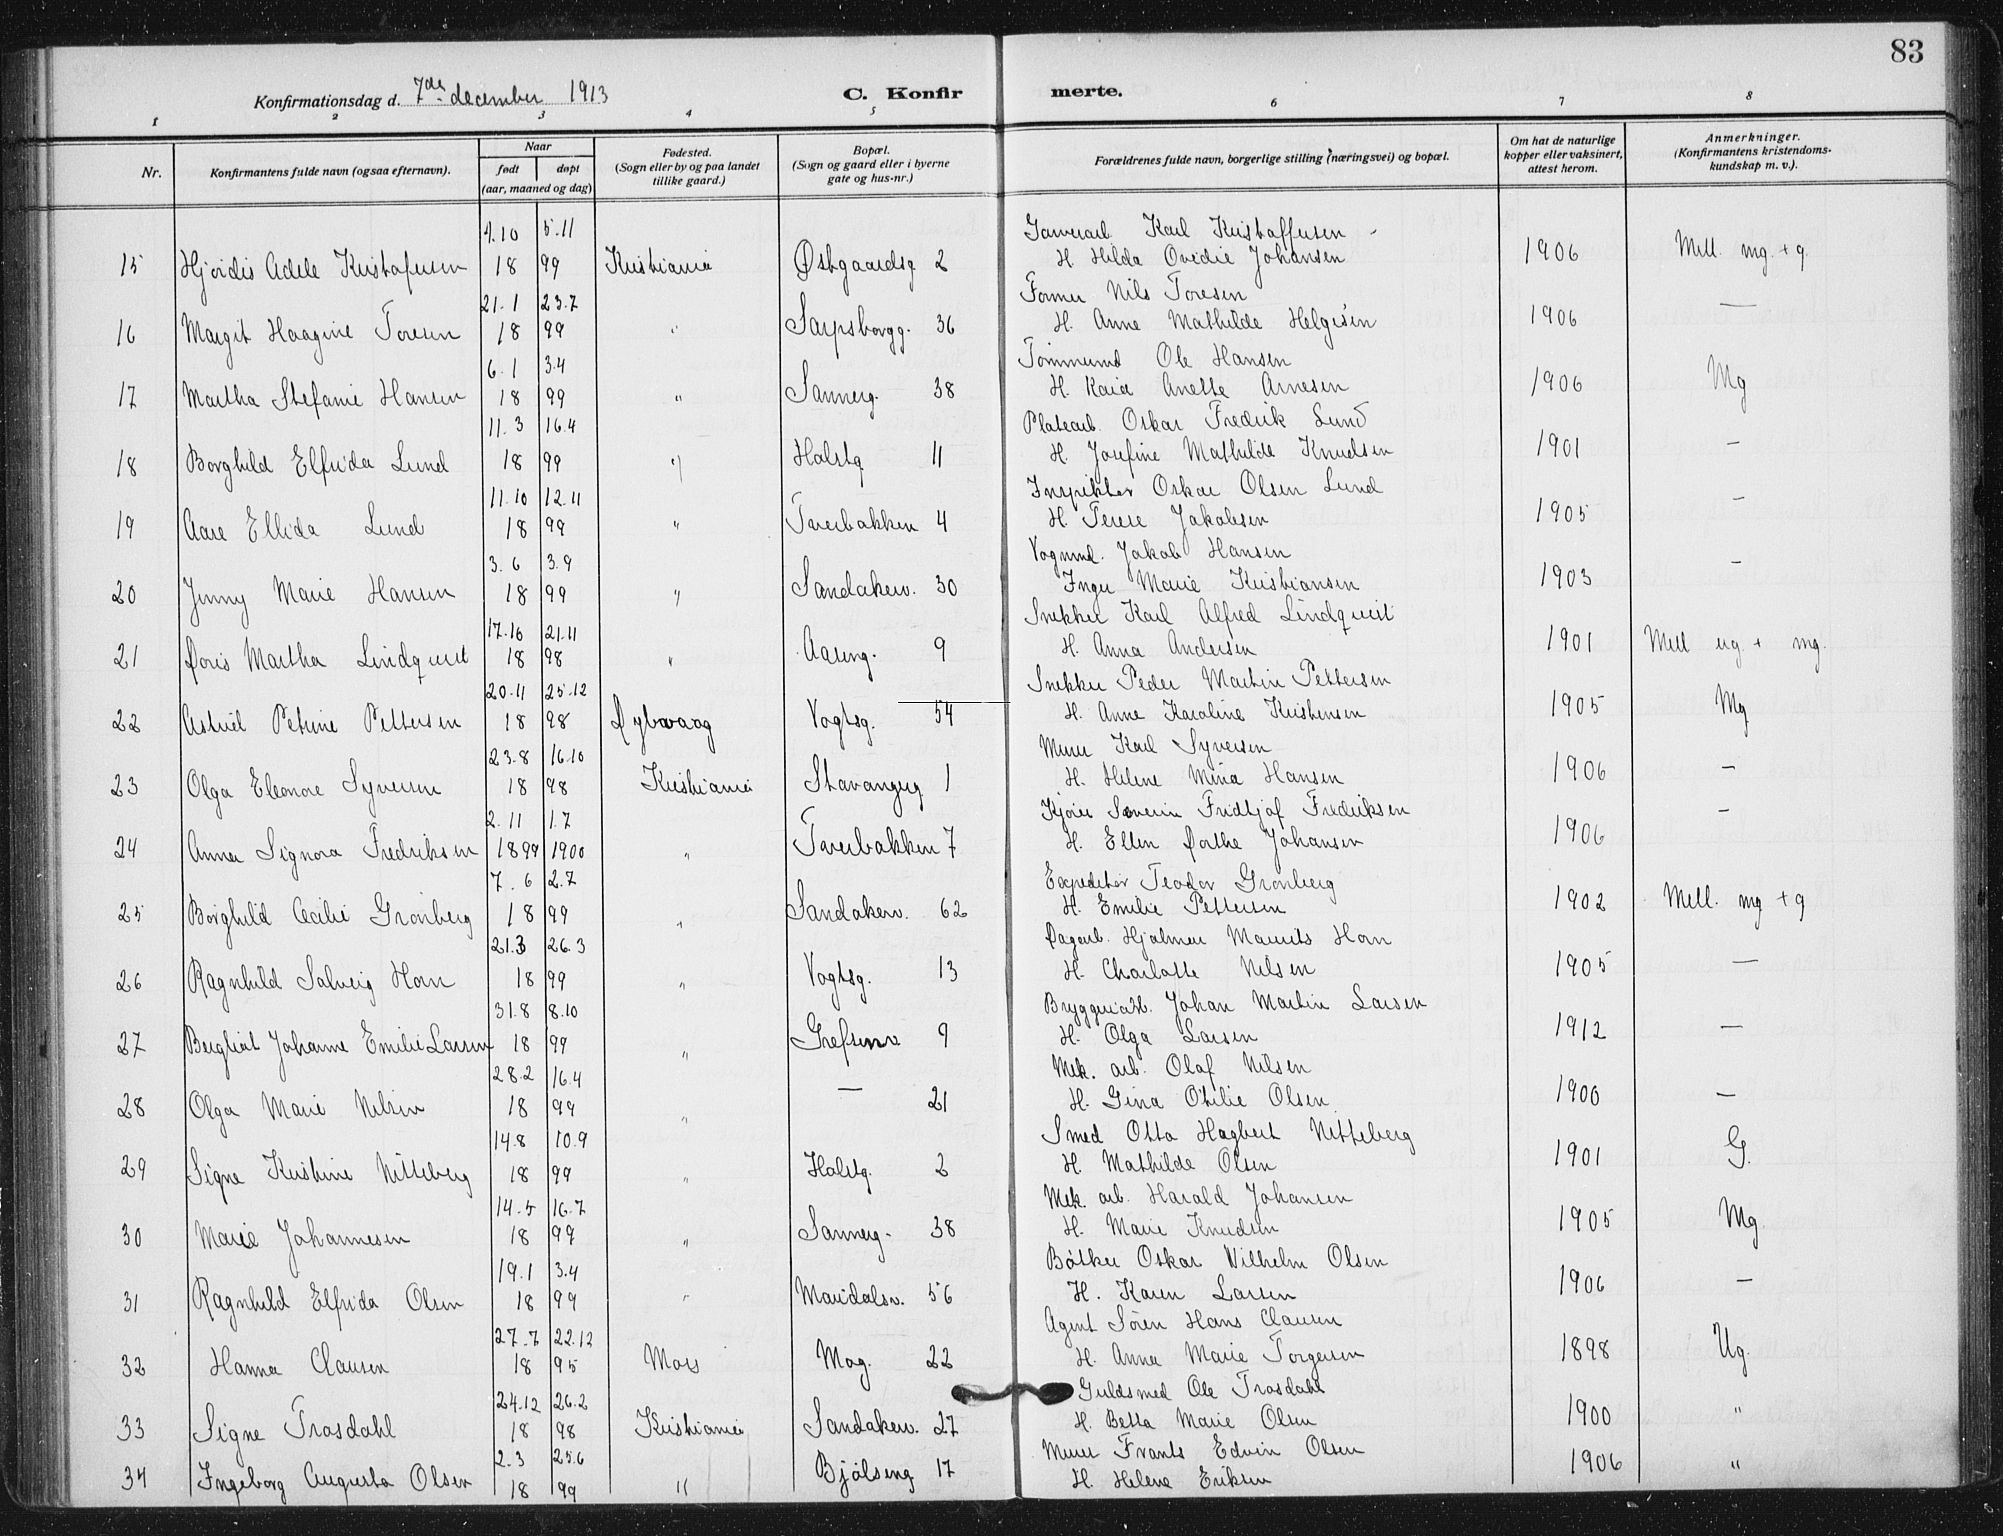 83
Konfirmationsdag d. 7de december 1913 C. Konfir merte.
1 2 3 4 5 6 7 8
Nr. Konfirmantens fulde navn (ogsaa efternavn). Naar født døpt (aar, maaned og dag) Fødested. (Sogn eller by og paa landet tillike gaard.) Bopæl. (Sogn og gaard eller i byerne gate og hus-nr.) Forældrenes fulde navn, borgerlige stilling (næringsvei) og bopæl. Om hat de naturlige kopper eller vaksinert, attest herom. Anmerkninger. (Konfirmantens kristendomskundskap m. v.).
4.10 5.11 Garverarb. Karl Kristoffersen
15 Hjørdis Adele Kristofersen 18 99 Kristiania Østgaardsg 2 H. Hilda Ovidie Johansen 1906 Mell. mg. + g.
21.1 23.7 Former Nils Toresen
16 Margit Haagine Toresen 18 99 " Sarpsborgg. 36 H. Anne Mathilde Helgesen 1906 —
6.1 3.4 Tømmermd Ole Hansen
17 Martha Stefanie Hansen 18 99 " Sannerg. 38 H. Kaia Anette Arnesen 1906 Mg
11.3 16.4 Platearb. Oskar Fredrik Lund
18 Borghild Elfrida Lund 18 99 " Halstg 11 H. Josefine Mathilde Knudsen 1901 —
11.10 12.11 Inspektør Oskar Olsen Lund
19 Aase Ellida Lund 18 99 " Tverbakken 4 H. Jakobsen 1905 —
3.6 3.9 Vognmd. Jakob Hansen
20 Jenny Marie Hansen 18 99 " Sandakerv. 30 Inger Marie Kristiansen 1903 —
17.10 21.11 Snekker Karl Alfred Lindqvist
21 Doris Martha Lindquist 18 98 " Aaseng. 9 H. Anna Andersen 1901 Mell ug + mg.
20.11 25.12 Snekker Peder Martin Pettersen
22 Astrid Petrine Pettersen 18 98 Dybvaag Vogtsg. 54 H. Anne Karoline Kristensen 1905 Mg
23.8 16.10 Murer Karl Syversen
23 Olga Eleonore Syversen 18 98 Kristiania Stavangerg 1 H. Helene Mina Hansen 1906 —
2.11 1.7 Kjører Severin Fridtjof Fredriksen
24 Anna Signora Fredriksen 1899 1900 " Tverbakken 7 H. Ellen Dorthe Johansen 1906 —
7.6 2.7 Expeditør Teodor Grønberg
25 Borghild Cecilie Grønberg 18 99 " Sandakerv. 62 H. Emilie Pettersen 1902 Mell. mg + g
21.3 26.3 Dagarb. Hjalmar Maurits Horn
26 Ragnhild Solveig Horn 18 99 " Vogtsg. 13 H. Charlotte Nilsen 1905 —
31.8 8.10 Bryggeriarb. Johan Martin Larsen
27 Bergliot Johanne Emilie Larsen 18 99 " Grefsenv 9 H. Olga Larsen 1912 —
28.2 16.4 Mek. arb. Olaf Nilsen
28 Olga Marie Nilsen 18 99 " — 21 H. Gina Otilie Olsen 1900 —
14.8 10.9 Smed Otto Hagbert Nitteberg
29 Signe Kristine Nitteberg 18 99 " Halstg. 2 H. Mathilde Olsen 1901 G.
14.5 16.7 Mek. arb. Harald Johansen
30 Marie Johannesen 18 99 " Sannerg. 38 H. Marie Knudsen 1905 Mg.
19.1 3.4 Bøtker Oskar Vilhelm Olsen
31 Ragnhild Elfrida Olsen 18 99 " Maridalsv. 56 H. Karen Larsen 1906 —
27.7 22.12 Agent Sören Hans Clausen
32 Hanna Clausen 18 95 Mors Mog. 22 H. Anna Marie Torgersen 1898 Ug.
24.12 26.2 Guldsmed Ole Trosdahl
33 Signe Trosdahl 18 98 Kristiania Sandakerv. 27 H. Betta Marie Olsen 1900 "
2.3 25.6 Murer Frants Edvin Olsen
34 Ingeborg Augusta Olsen 18 99 " Bjølseng 17 H. Helene Eriksen 1906 "